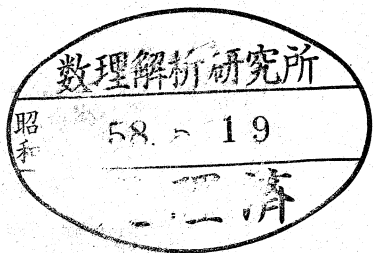 数理解析研究所
昭和 58. 19
済